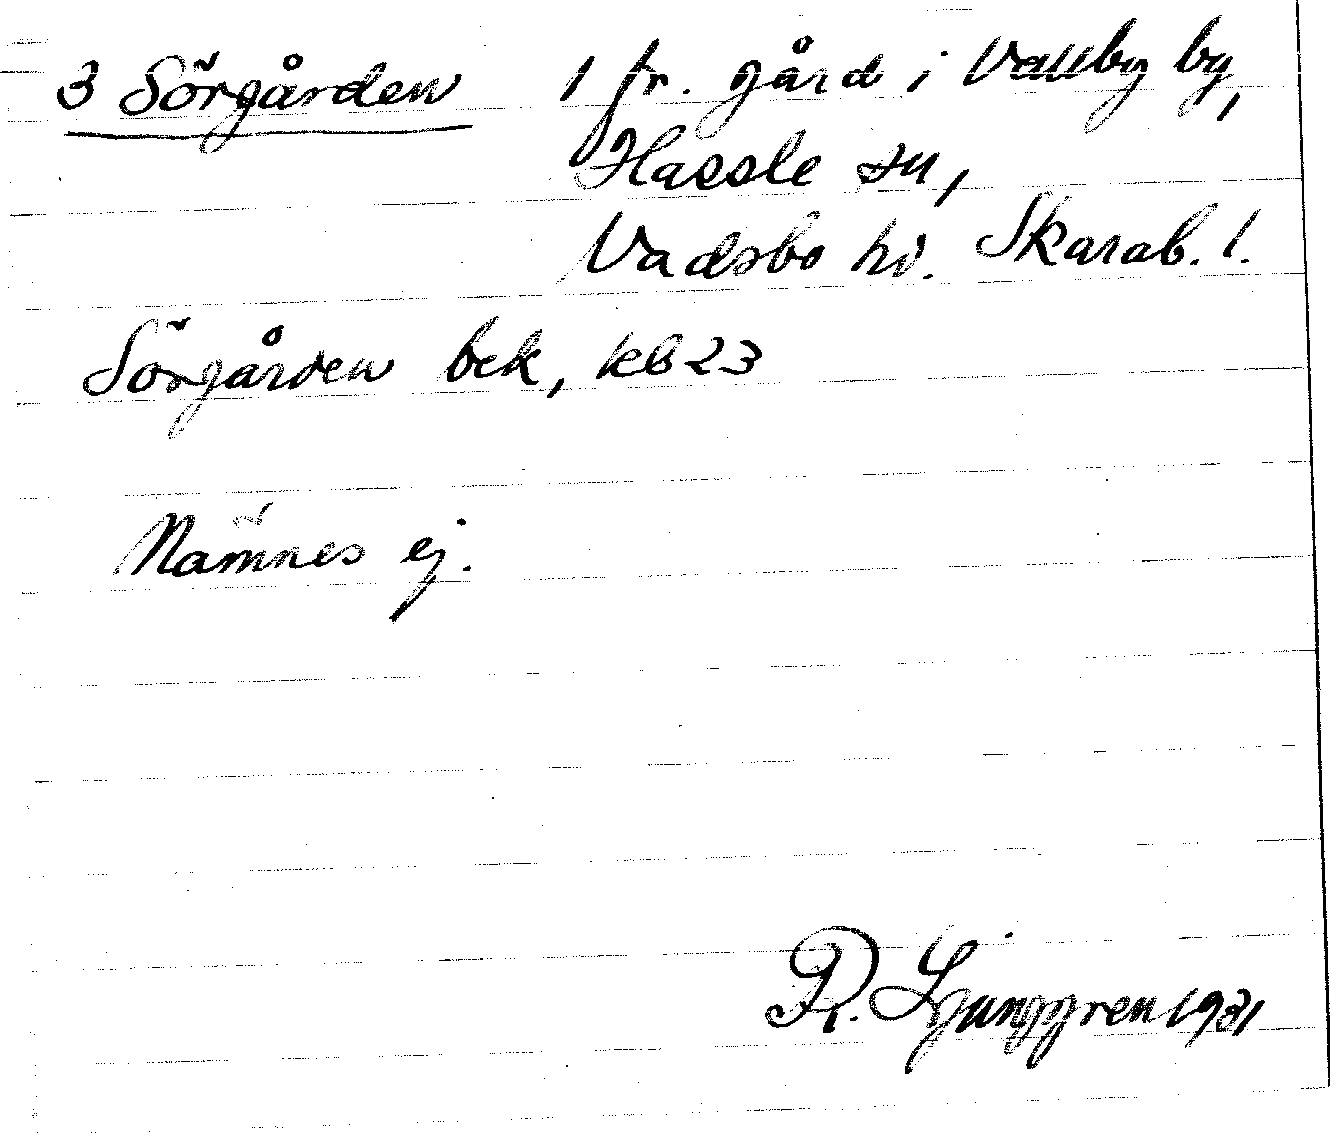 3 Sörgården 1 fr. gård i Vallby by,
Hassle sn,
Vadsbo hd. Skarab. l.
Sörgården bek, kb 23
Nämnes ej.
R. Ljunggren 1931